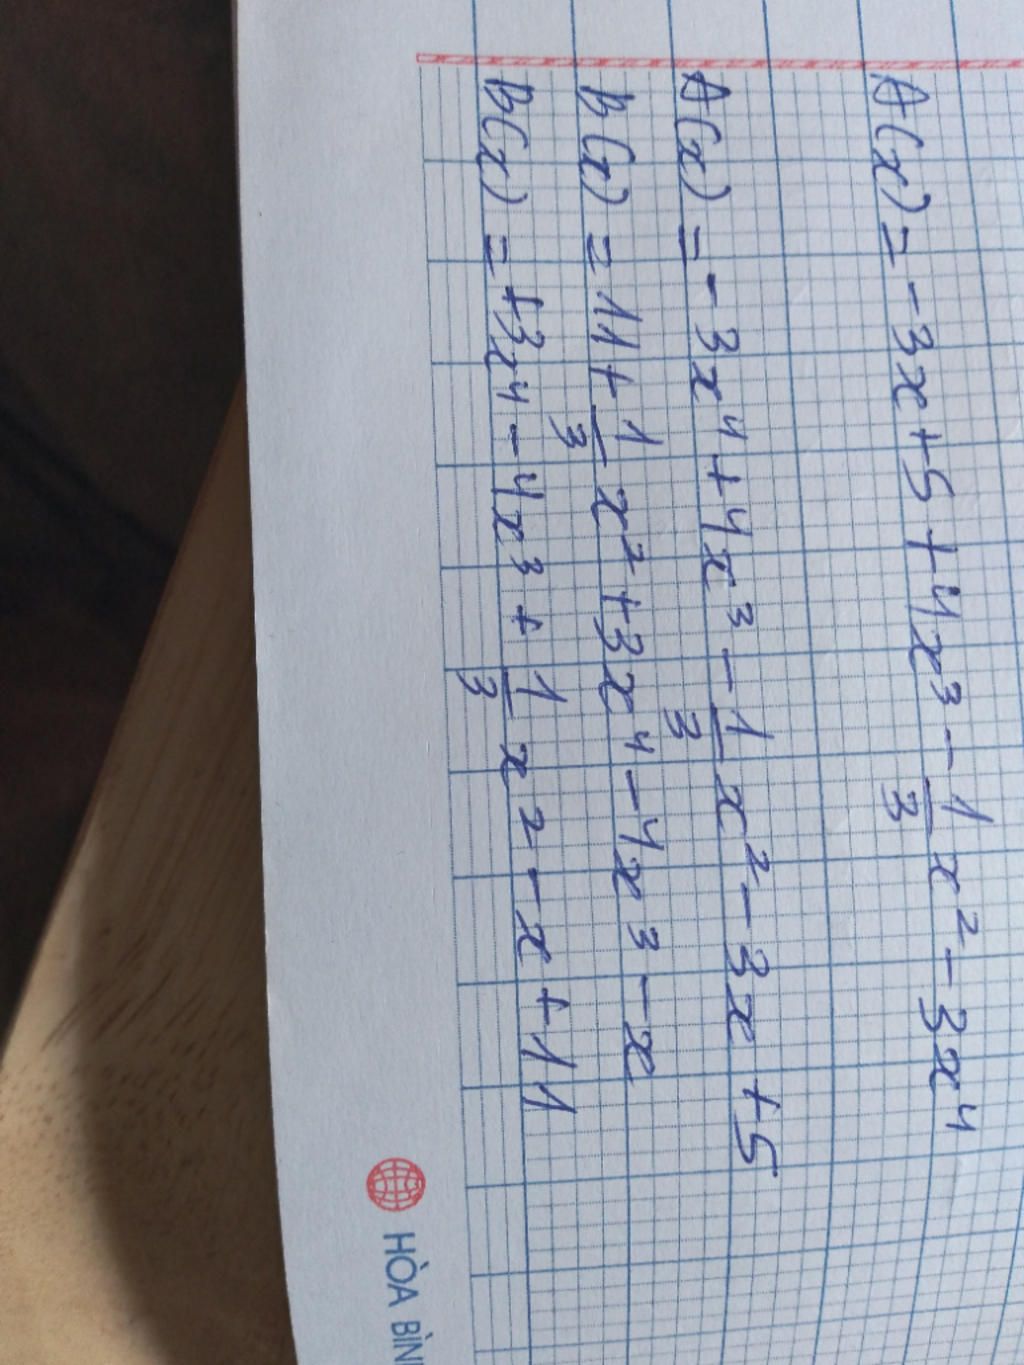 A(x) = -3x + 5 + 4x³ - 1/3 x² - 3x⁴
A(x) = -3x⁴ + 4x³ - 1/3 x² - 3x + 5
B(x) = 11 + 1/3 x² + 3x⁴ - 4x³ - x
B(x) = +3x⁴ - 4x³ + 1/3 x² - x + 11
HÒA BÌN